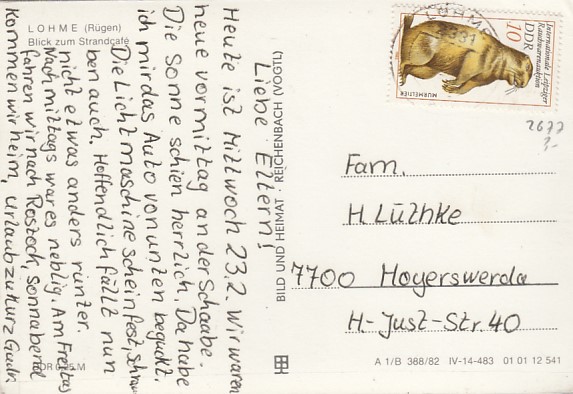 LOHME (Rügen)
Blick zum Strandcafé
Liebe Eltern!
Heute ist Mittwoch 23.2. Wir waren
heute vormittag an der Schaabe.
Die Sonne schien herrlich. Da habe
ich mir das Auto von unten beguckt.
Die Lichtmaschine schein fest, schrau
ben auch. Hoffendlich fällt nun
nicht etwas anders runter.
Nachmittags war es neblig. Am Freitag
fahren wir nach Rostock, Sonnabend
kommen wir heim, Urlaub zu kurz
BILD UND HEIMAT · REICHENBACH (VOGTL)
Internationale Leipziger
Rauchwarenauktion
DDR
10
MURMELTIER
LOHME
2331
2677
Fam.
H. Lüthke
7700 Hoyerswerda
H-Just-Str. 40
A 1/B 388/82 IV-14-483 01 01 12 541